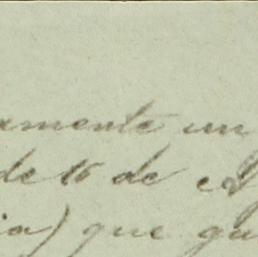 amente un
de 16 de A
ia) que gu